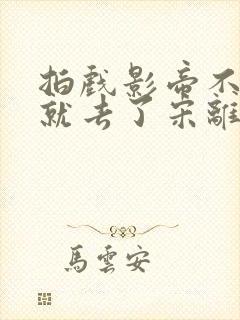 拍戲影帝不
就去了宋離
馬雲安